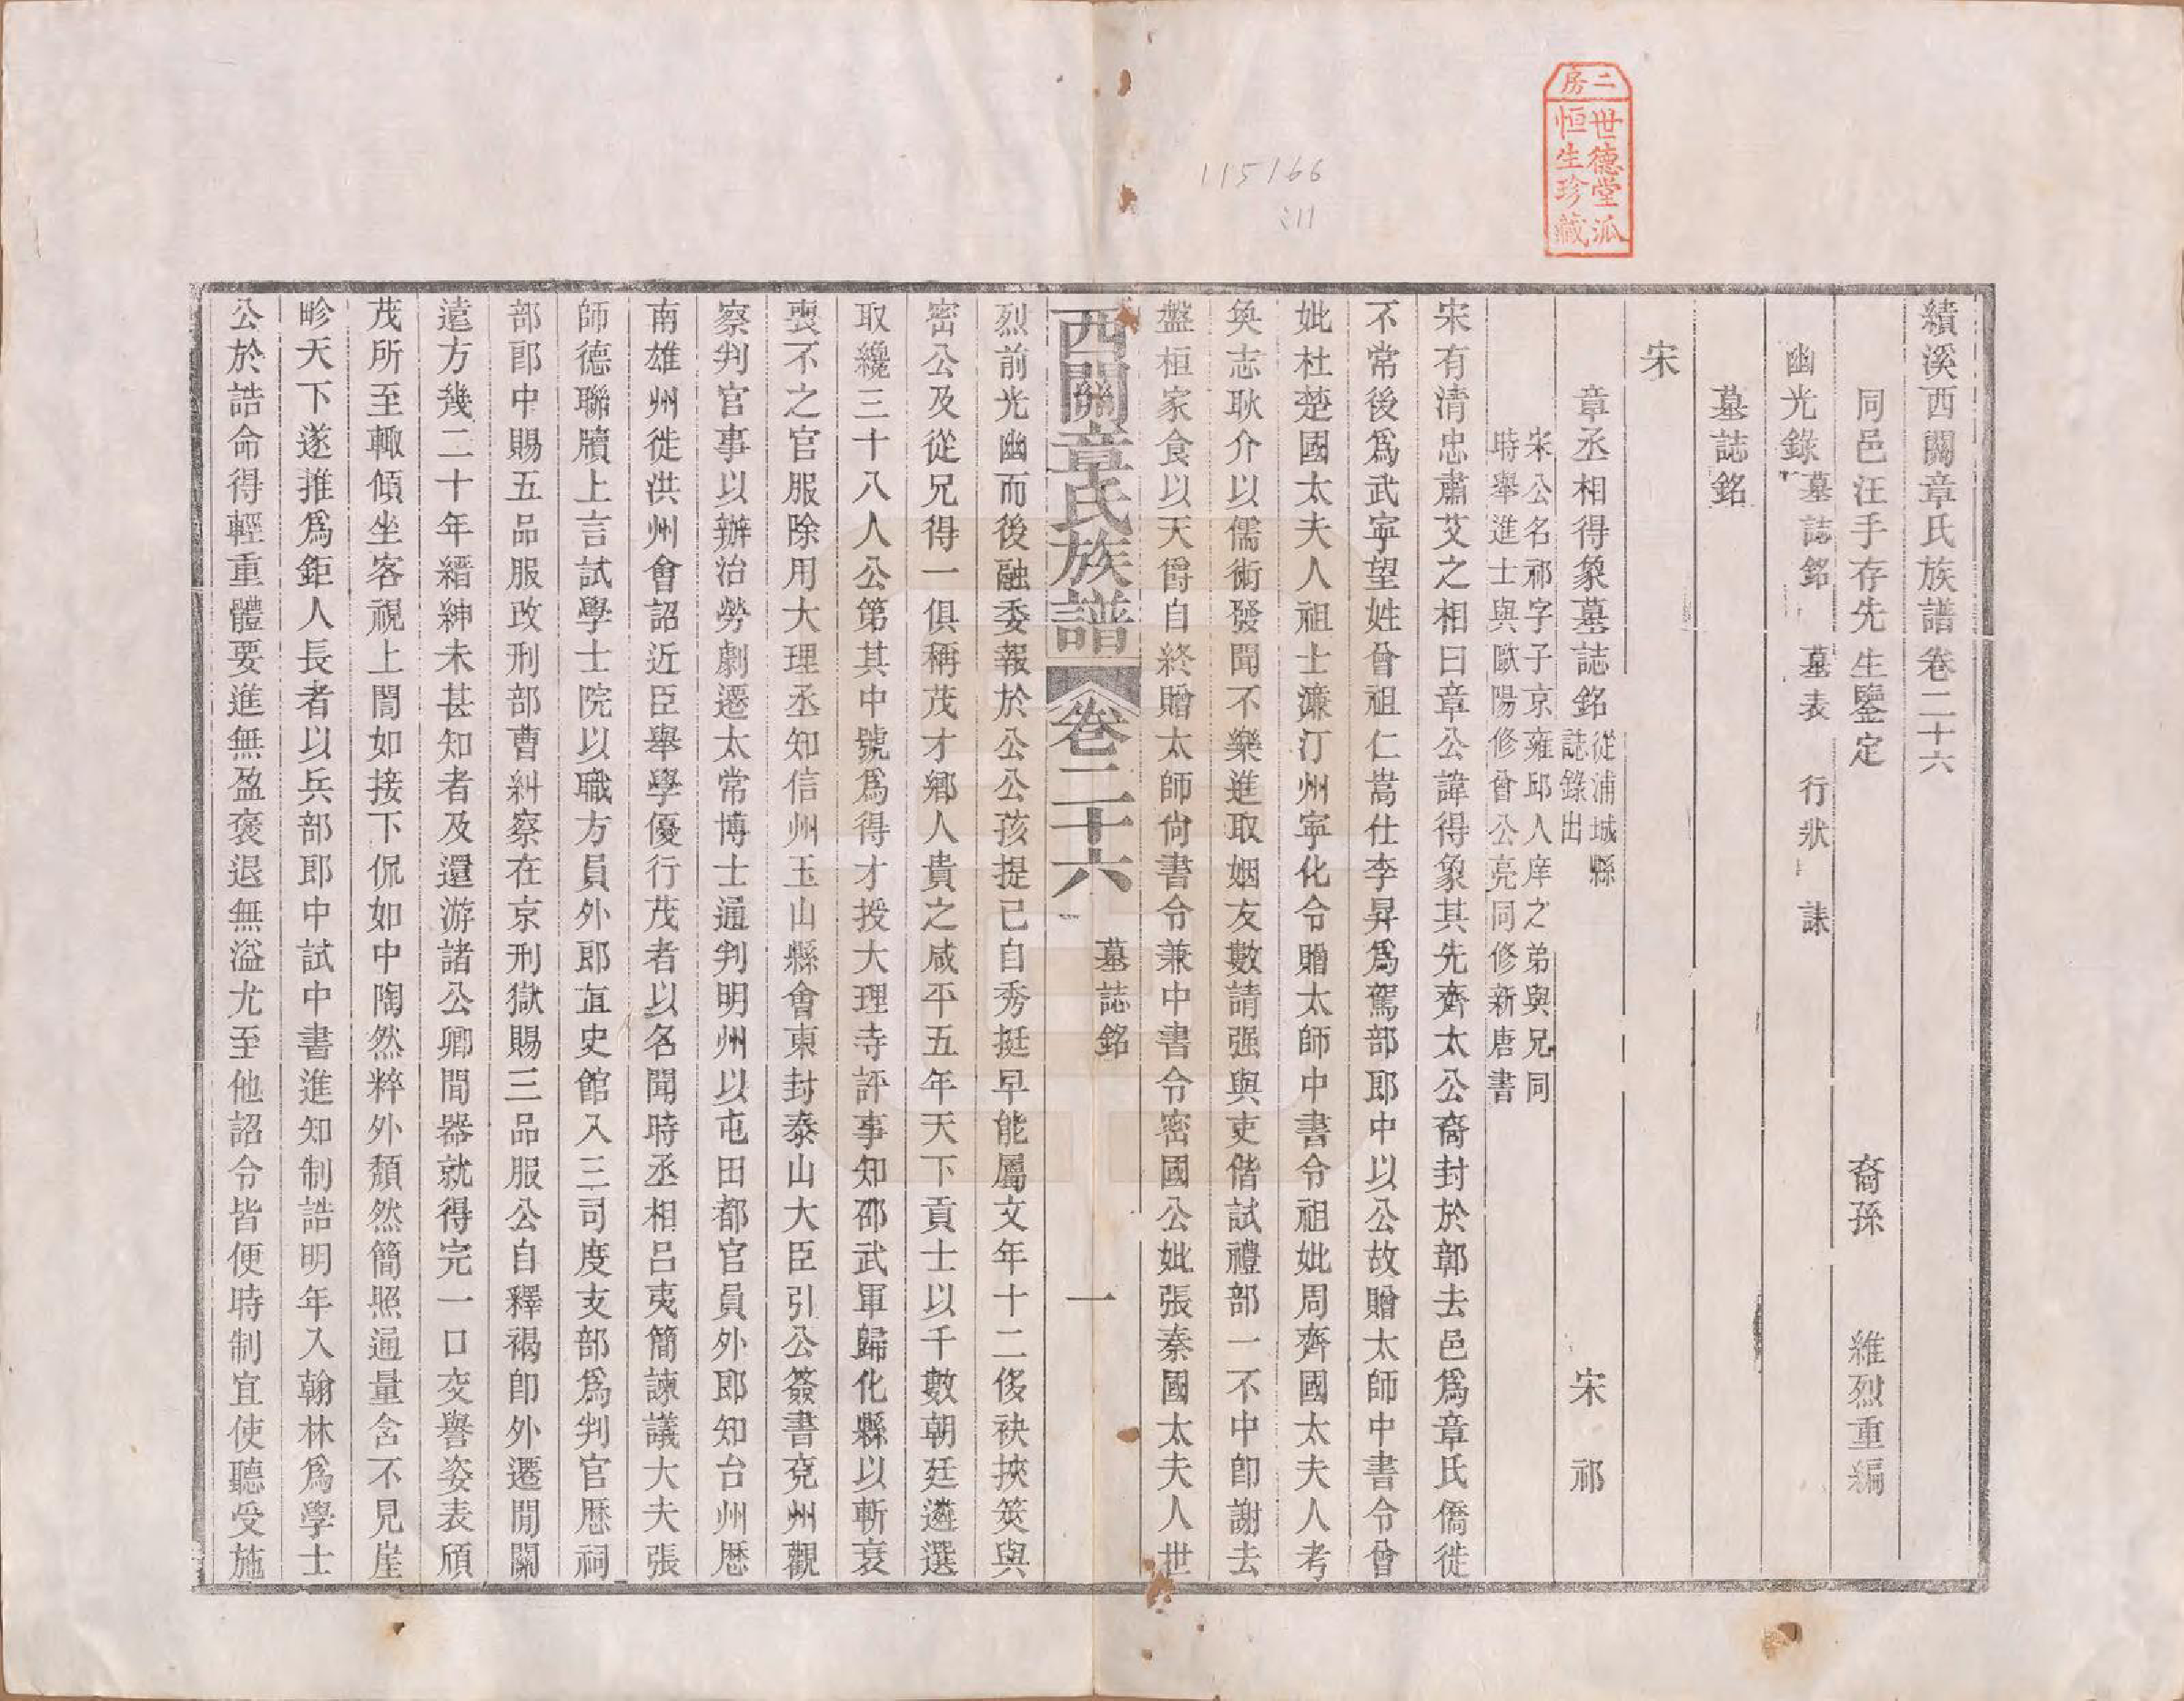 二房
世德堂派
恒生珍藏
115166
211
績溪西關章氏族譜卷二十六
同邑汪手存先生鑒定 裔孫 維烈重編
幽光錄 墓誌銘 墓表 行狀 誄
墓誌銘
宋
章丞相得象墓誌銘 從浦城縣誌錄出 宋 祁
宋公名祁字子京雍邱人庠之弟與兄同
時舉進士與歐陽修曾公亮同修新唐書
宋有清忠肅艾之相曰章公諱得象其先齊太公裔封於鄣去邑爲章氏僑徙
不常後爲武寧望姓曾祖仁嵩仕李昇爲駕部郎中以公故贈太師中書令曾
妣杜楚國太夫人祖士濂汀州寧化令贈太師中書令祖妣周齊國太夫人考
奐志耿介以儒術發聞不樂進取姻友數請强與吏偕試禮部一不中卽謝去
盤桓家食以天爵自終贈太師尙書令兼中書令密國公妣張秦國太夫人世
西關章氏族譜 卷二十六 墓誌銘 一
烈前光幽而後融委報於公公孩提已自秀挺早能屬文年十二侈袂挾筴與
密公及從兄得一俱稱茂才鄉人貴之咸平五年天下貢士以千數朝廷遴選
取纔三十八人公第其中號爲得才授大理寺評事知邵武軍歸化縣以斬衰
喪不之官服除用大理丞知信州玉山縣會東封泰山大臣引公簽書兗州觀
察判官事以辦治勞劇遷太常博士通判明州以屯田都官員外郎知台州歷
南雄州徙洪州會詔近臣舉學優行茂者以名聞時丞相呂夷簡諫議大夫張
師德聯牘上言試學士院以職方員外郎直史館入三司度支部爲判官歷祠
部郎中賜五品服改刑部曹糾察在京刑獄賜三品服公自釋褐卽外遷閒關
遠方幾二十年縉紳未甚知者及還游諸公卿間器就得完一口交譽姿表頎
茂所至輒傾坐客視上誾如接下侃如中陶然粹外頹然簡照通量含不見崖
畛天下遂推爲鉅人長者以兵部郎中試中書進知制誥明年入翰林爲學士
公於誥命得輕重體要進無盈褒退無溢尤至他詔令皆便時制宜使聽受施